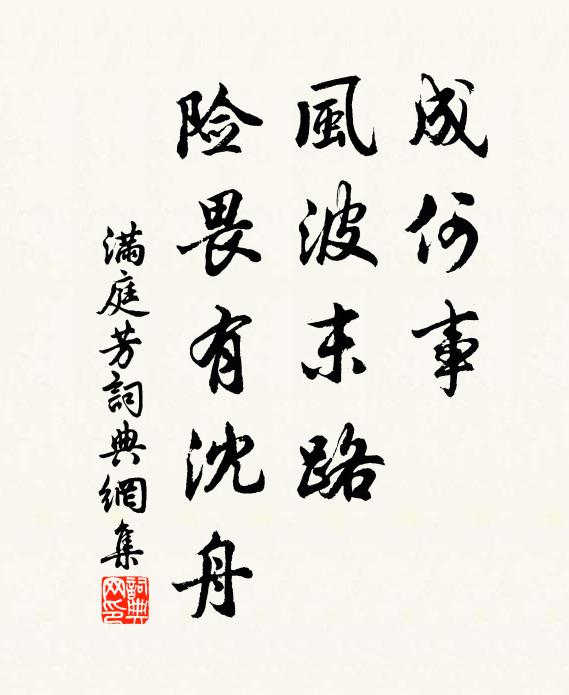 成何事
風波末路
险畏有沈舟
滿庭芳詞典網集
詞典网印